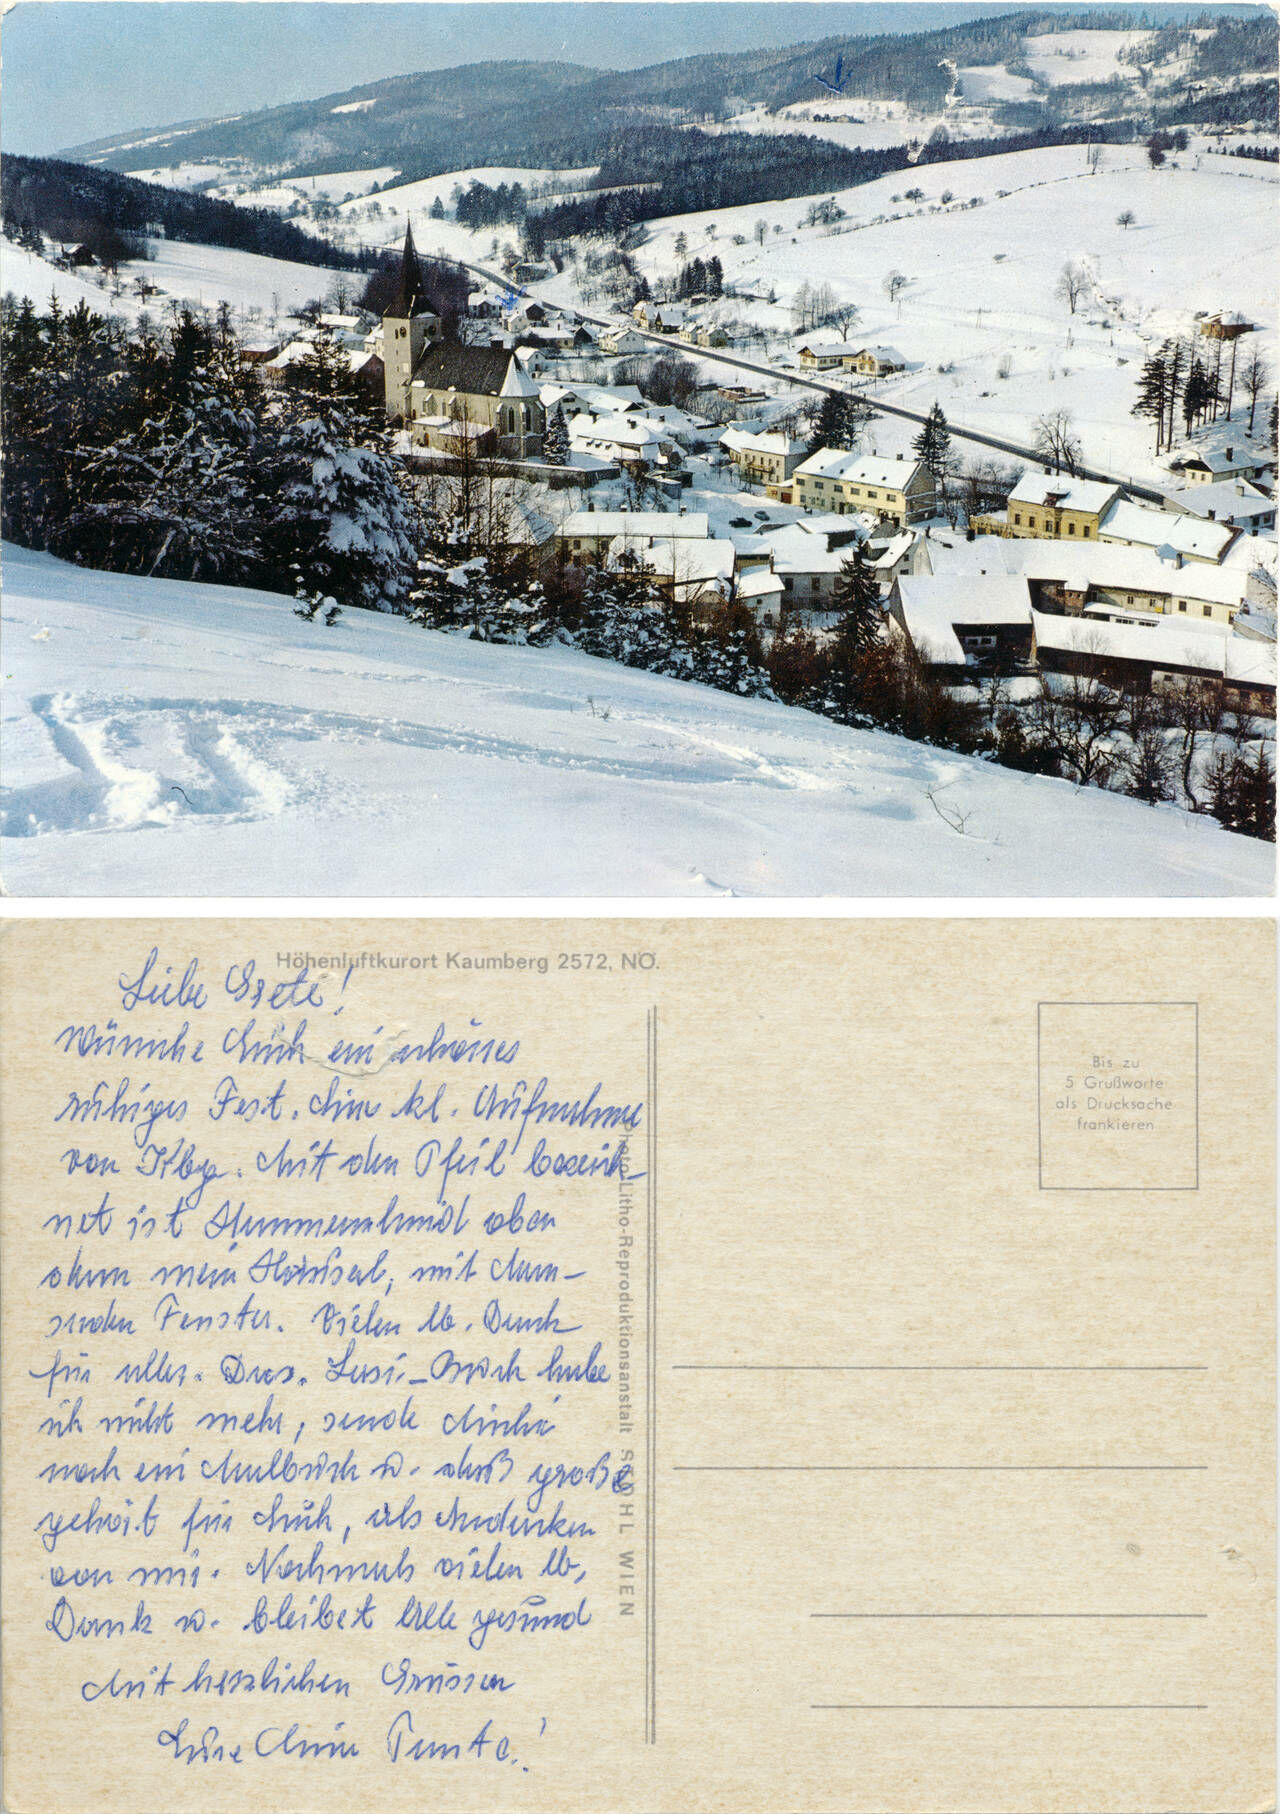 Höhenluftkurort Kaumberg 2572, NÖ.
Liebe Grete!
Wünsche Euch ein schönes
ruhiges Fest. Eine kl. Aufnahme
von Kbg. Mit den Pfeil bezeich-
net ist oben
mein Häuserl, mit
Fenster. Vielen lb. Dank
für alles. Buch habe
ich nicht mehr, sende
noch ein u. daß große
gehört für Euch, als Andenken
von mir. Nochmals vielen lb,
Dank u. bleibet alle gesund
Mit herzlichen Grüssen
Eure Tante!
Photo-Litho-Reproduktionsanstalt STOHL WIEN
Bis zu
5 Grußworte
als Drucksache
frankieren